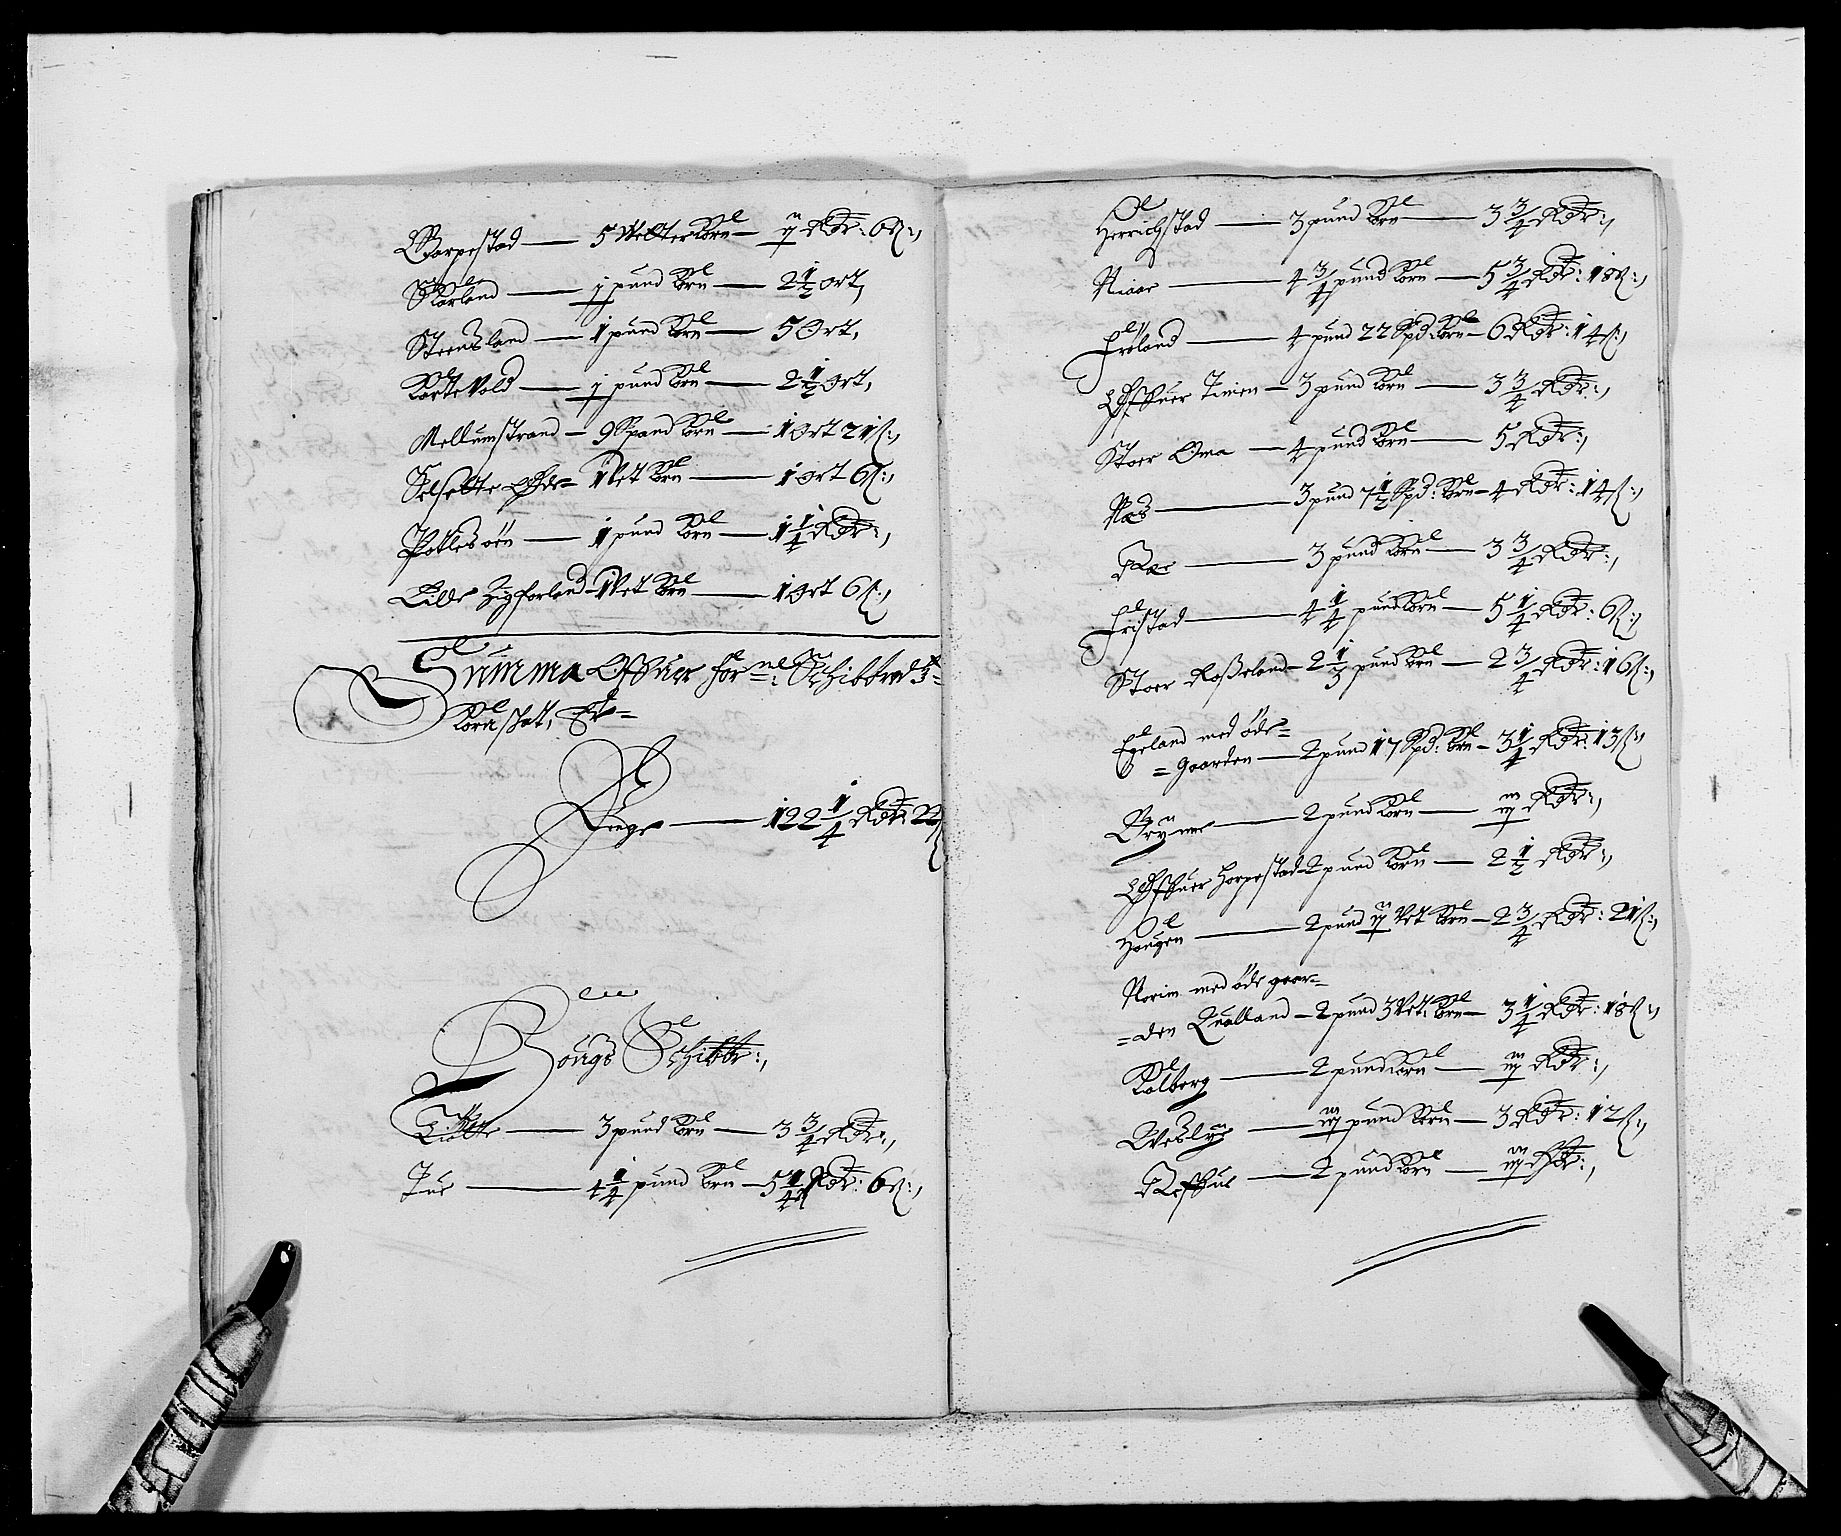 Garpestad — 5 Vetter Korn — ij Rdr: 6 ß:,
Karland — j pund Korn — 2½ ort,
Steensland — 1 pund Korn — 5 Ort,
Kartevold — j pund Korn — 2½ Ort,
Mellumstrand — 9 Spand Korn — 1 Ort 21 ß:,
Selsette Øde= 1 Vet Korn — 1 ort 6 ß:,
Potlesöen — 1 pund Korn — 1¼ Rdr:,
Lille Sigforland — 1 Vet Korn — 1 Ort 6 ß:,
Summa Offuer forne: Schibbredtz=
Kornschatt, Er=
Penge — 122¼ Rdr: 22 ß
Bougs Schibbr:,
Lintte — 3 pund Korn — 3¾ Rdr:,
Tue — 4¼ pund Korn — 5¼ Rdr: 6 ß:,
Herrichstad — 3 pund Korn — 3¾ Rdr:,
Niaae — 4¾ pund Korn — 5¾ Rdr: 18 ß:,
Fröland — 4 pund 22 Spd: Korn — 6 Rdr: 14 ß:,
Øffuer Timen — 3 pund Korn — 3¾ Rdr:,
Stoer Oma — 4 pund Korn — 5 Rdr:,
Næs — 3 pund 7½ Spd: Korn — 4 Rdr: 14 ß:,
Ræe — 3 pund Korn — 3¾ Rdr:,
Fristad — 4¼ pund Korn — 5¼ Rdr: 6 ß:,
Stoer Roßeland — 2⅓ pund Korn — 2¾ Rdr: 16 ß:,
Egeland med öde=
=Gaarden — 2 pund 17 Spd: Korn — 3¼ Rdr: 13 ß:,
Brÿnne — 2 pund Korn — iij Rdr:,
Øffuer Horpestad — 2 pund Korn — 2½ Rdr:,
Hougen — 2 pund ij Vet Korn — 2¾ Rdr: 21 ß:,
Norim med öde gaar=
=den Qualland — 2 pund 3 Vet: Korn — 3¼ Rdr: 18 ß:,
Kalberg — 2 pund Korn — iij Rdr:,
Weslÿe — iij pund Korn — 3 Rdr: 12 ß:,
Refhus — 2 pund Korn — iij Rdr:,